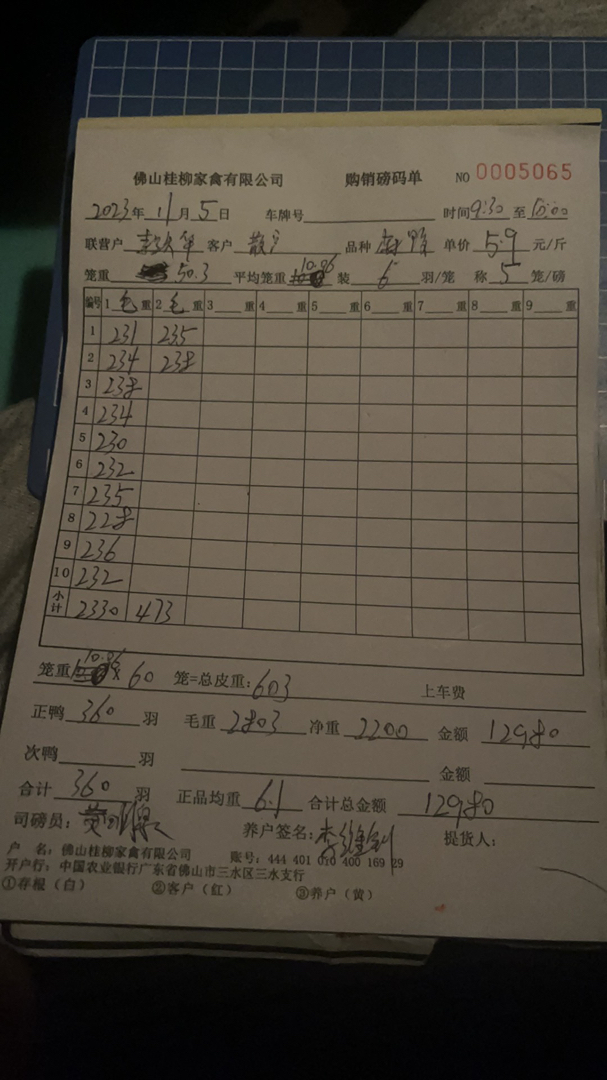 佛山桂柳家禽有限公司 购销磅码单 NO 0005065
2023年11月5日 车牌号 时间9:30至10:00
联营户 客户 散户 品种 单价 5.9 元/斤
笼重 50.3 平均笼重 10.06 装 6 羽/笼 称 5 笼/磅
编号 1 毛 重 2 毛 重 3 重 4 重 5 重 6 重 7 重 8 重 9 重
1 231 235
2 234 238
3 238
4 234
5 230
6 232
7 235
8 228
9 236
10 232
小计 2330 473
笼重 10.06 × 60 笼=总皮重: 603 上车费
正鸭 360 羽 毛重 2803 净重 2200 金额 12980
次鸭 羽 金额
合计 360 羽 正品均重 6.1 合计总金额 12980
司磅员: 养户签名: 提货人:
户 名: 佛山桂柳家禽有限公司 账号: 444 401 010 400 169 29
开户行: 中国农业银行广东省佛山市三水区三水支行
①存根（白） ②客户（红） ③养户（黄）